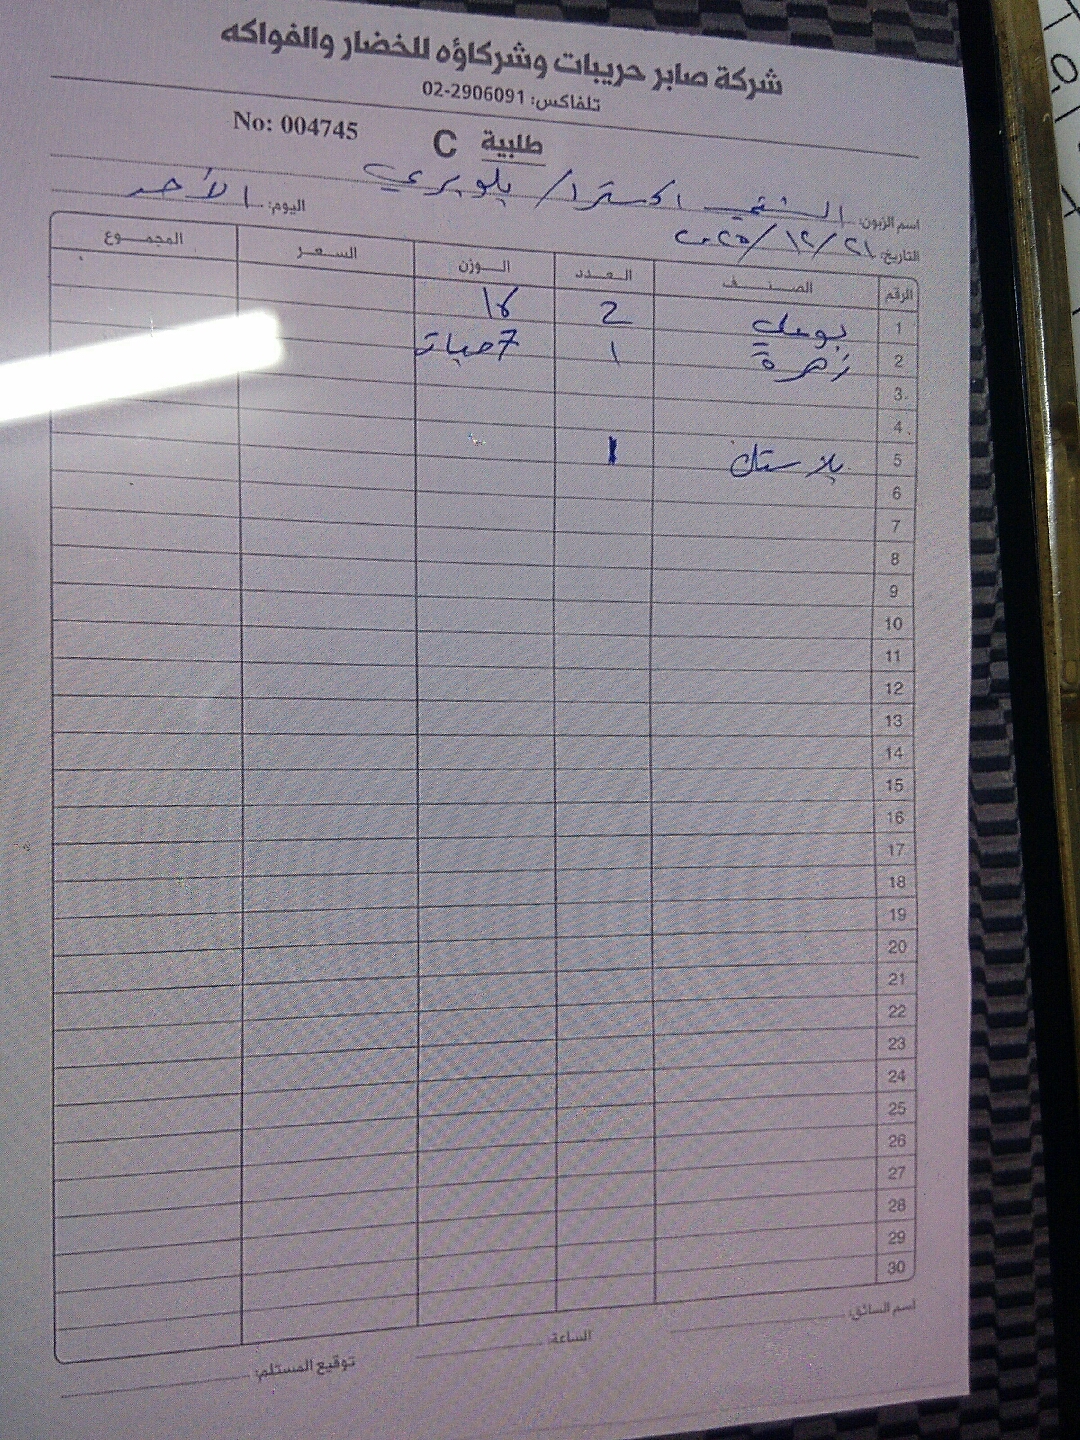 شركة صابر حريبات وشركاؤه للخضار والفواكه
تلفاكس: 02-2906091
No: 004745 طلبية C
اسم الزبون: الشني اكسترا / بلوبري اليوم: الأحد
التاريخ: ٢٠٢٥/١٢/٢١
الرقم الصنف العدد الوزن السعر المجموع
1 بوملي 2 ١٤
2 زهرة ١ 7 حبات
3
4
5 بلاستك 1
6
7
8
9
10
11
12
13
14
15
16
17
18
19
20
21
22
23
24
25
26
27
28
29
30
اسم السائق: الساعة: توقيع المستلم: